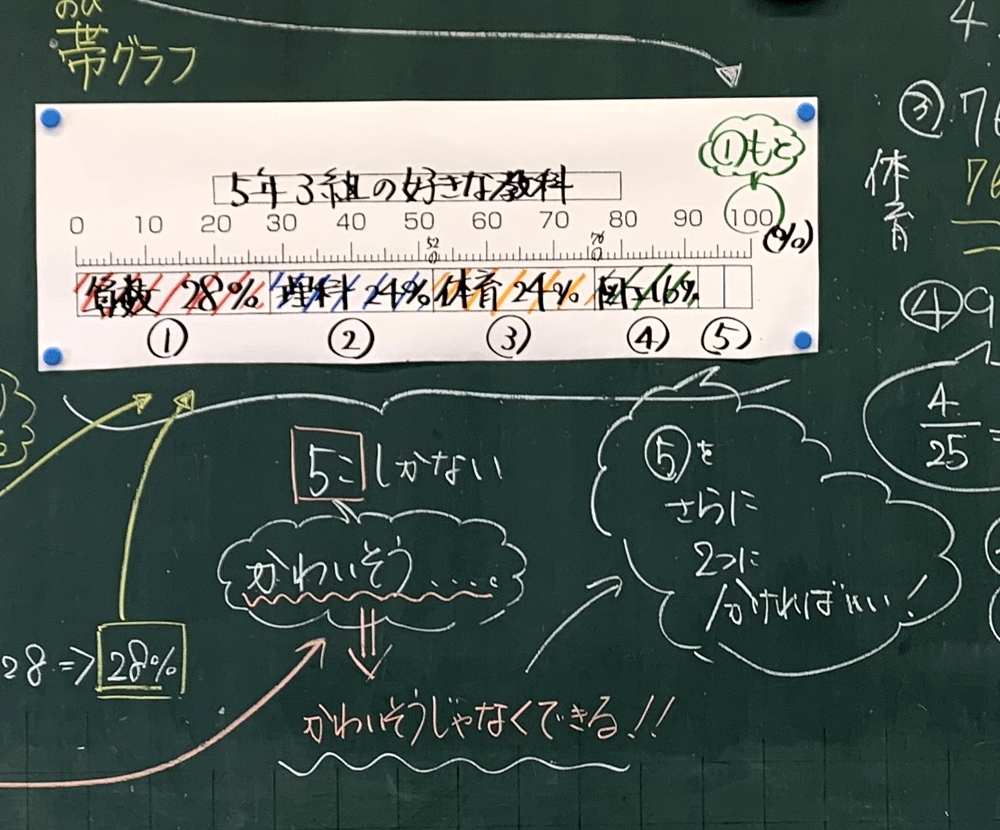 おび
帯グラフ
4
①もと
5年3組の好きな教科
0 10 20 30 40 50 60 70 80 90 100
(%)
52
76
算数 28% 理科 24% 体育 24% 図工16%
① ② ③ ④ ⑤
③76
体育
76
④9
4/25=
5こしかない
かわいそう.....
⑤を
さらに
2つに
わければいい!
28⇒28%
かわいそうじゃなくできる!!